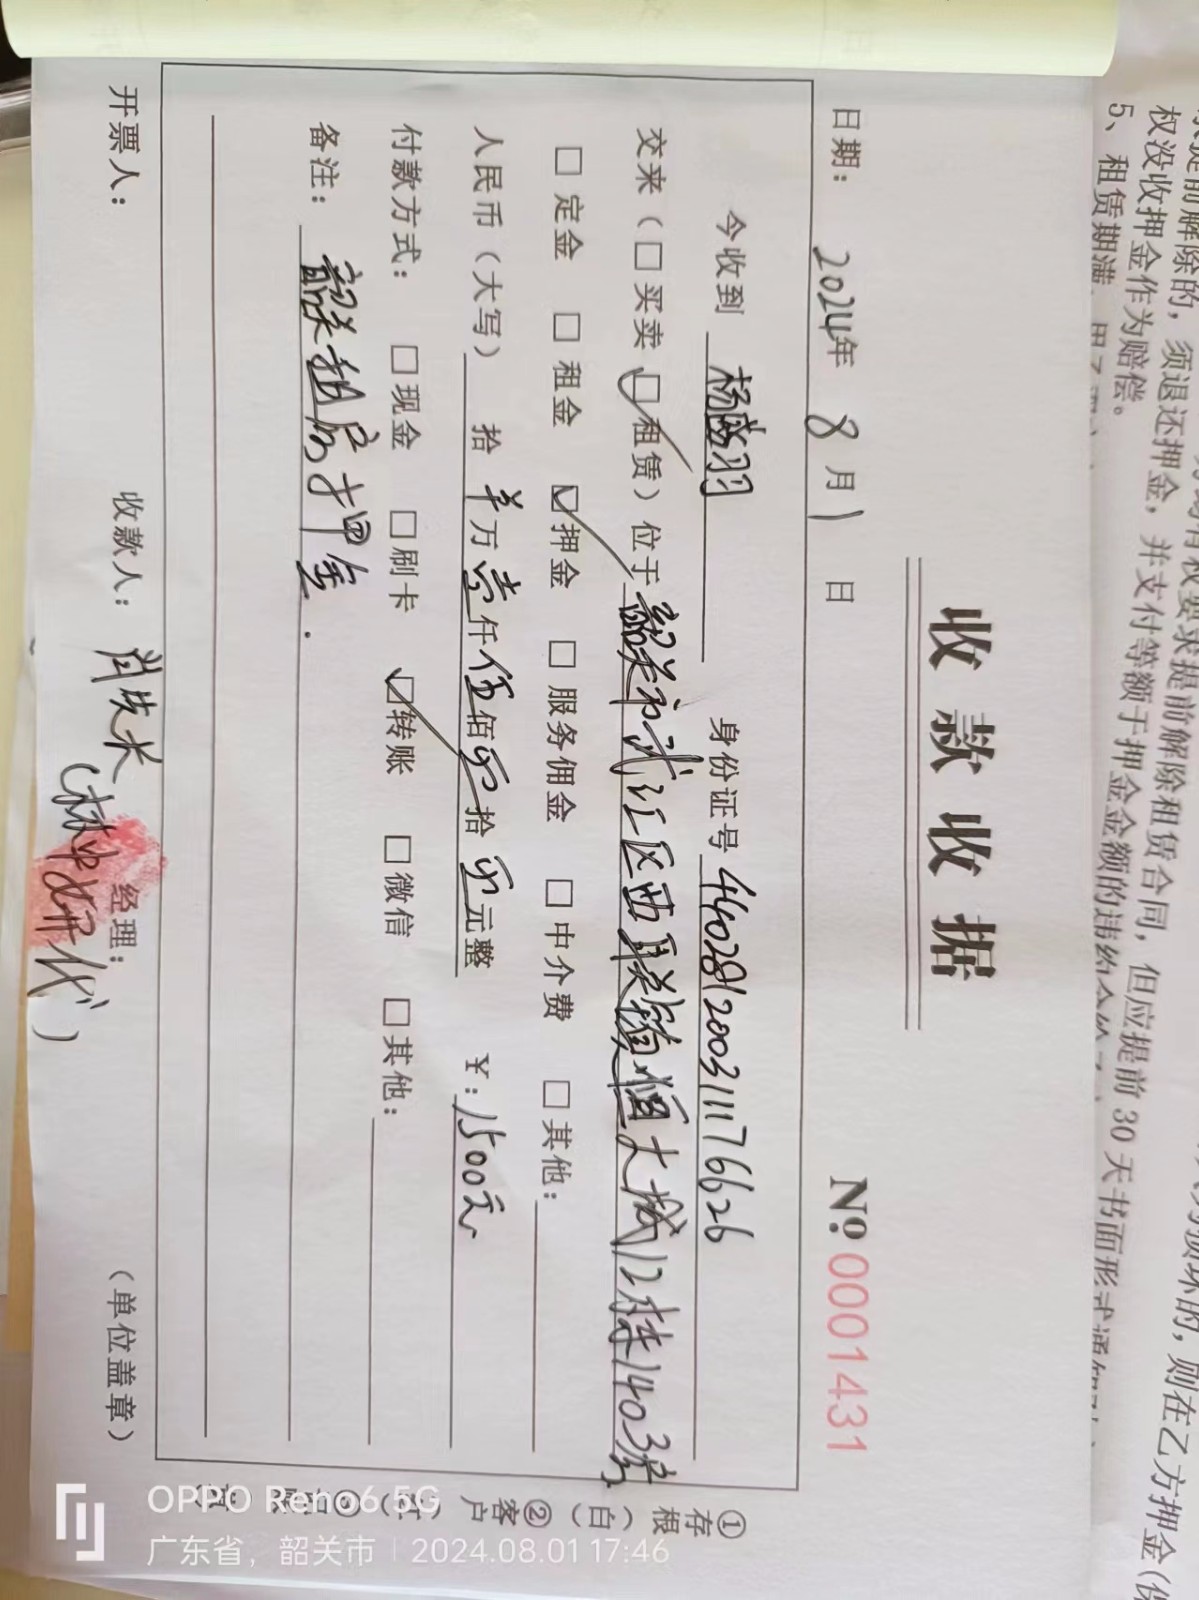 收款收据
No.0001431
日期：2024年 8月 1日
今收到 杨茜羽 身份证号 440281200311176626
交来（□买卖 ☑租赁）位于 韶关市武江区西联镇恒大城12栋1403房
□定金 □租金 ☑押金 □服务佣金 □中介费 □其他：
人民币（大写） 拾 羊万 壹仟 伍佰 零拾 零元整 ¥：1500元
付款方式： □现金 □刷卡 ☑转账 □微信 □其他：
备注： 韶关租房押金.
开票人： 收款人： 经理： （单位盖章）
代）
①存根（白）②客户
权没收押金作为赔偿。
5、租赁期满
须退还押金，并支付等额于押金金额的违约金
有权要求提前解除租赁合同，但应提前30天书面形式通知
则在乙方押金
OPPO Reno6 5G
广东省，韶关市 | 2024.08.01 17:46